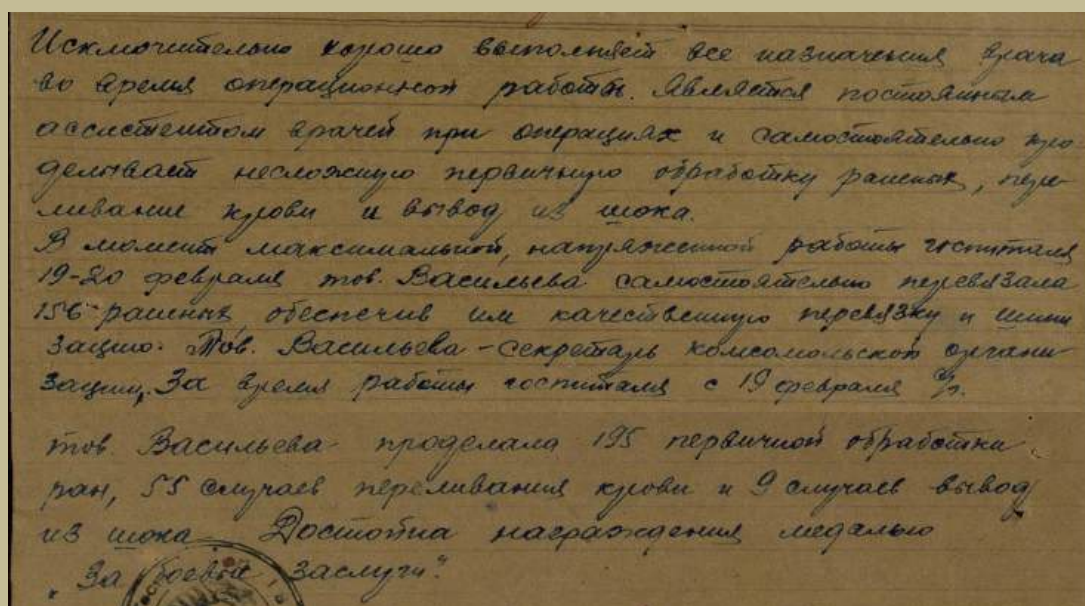 Исключительно хорошо выполняет все назначения врача
во время операционной работы. Является постоянным
ассистентом врачей при операциях и самостоятельно про-
делывает несложную первичную обработку раненых, пере-
ливание крови и вывод из шока.
В момент максимальной, напряженной работы госпиталя
19-20 февраля тов. Васильева самостоятельно перевязала
156 раненых обеспечив им качественную перевязку и шини
зацию. Тов. Васильева - секретарь комсомольской органи
зации. За время работы госпиталя с 19 февраля
тов. Васильева проделала 195 первичной обработки
ран, 55 случаев переливания крови и 9 случаев вывод
из шока Достойна награждения медалью
„За боевые заслуги".